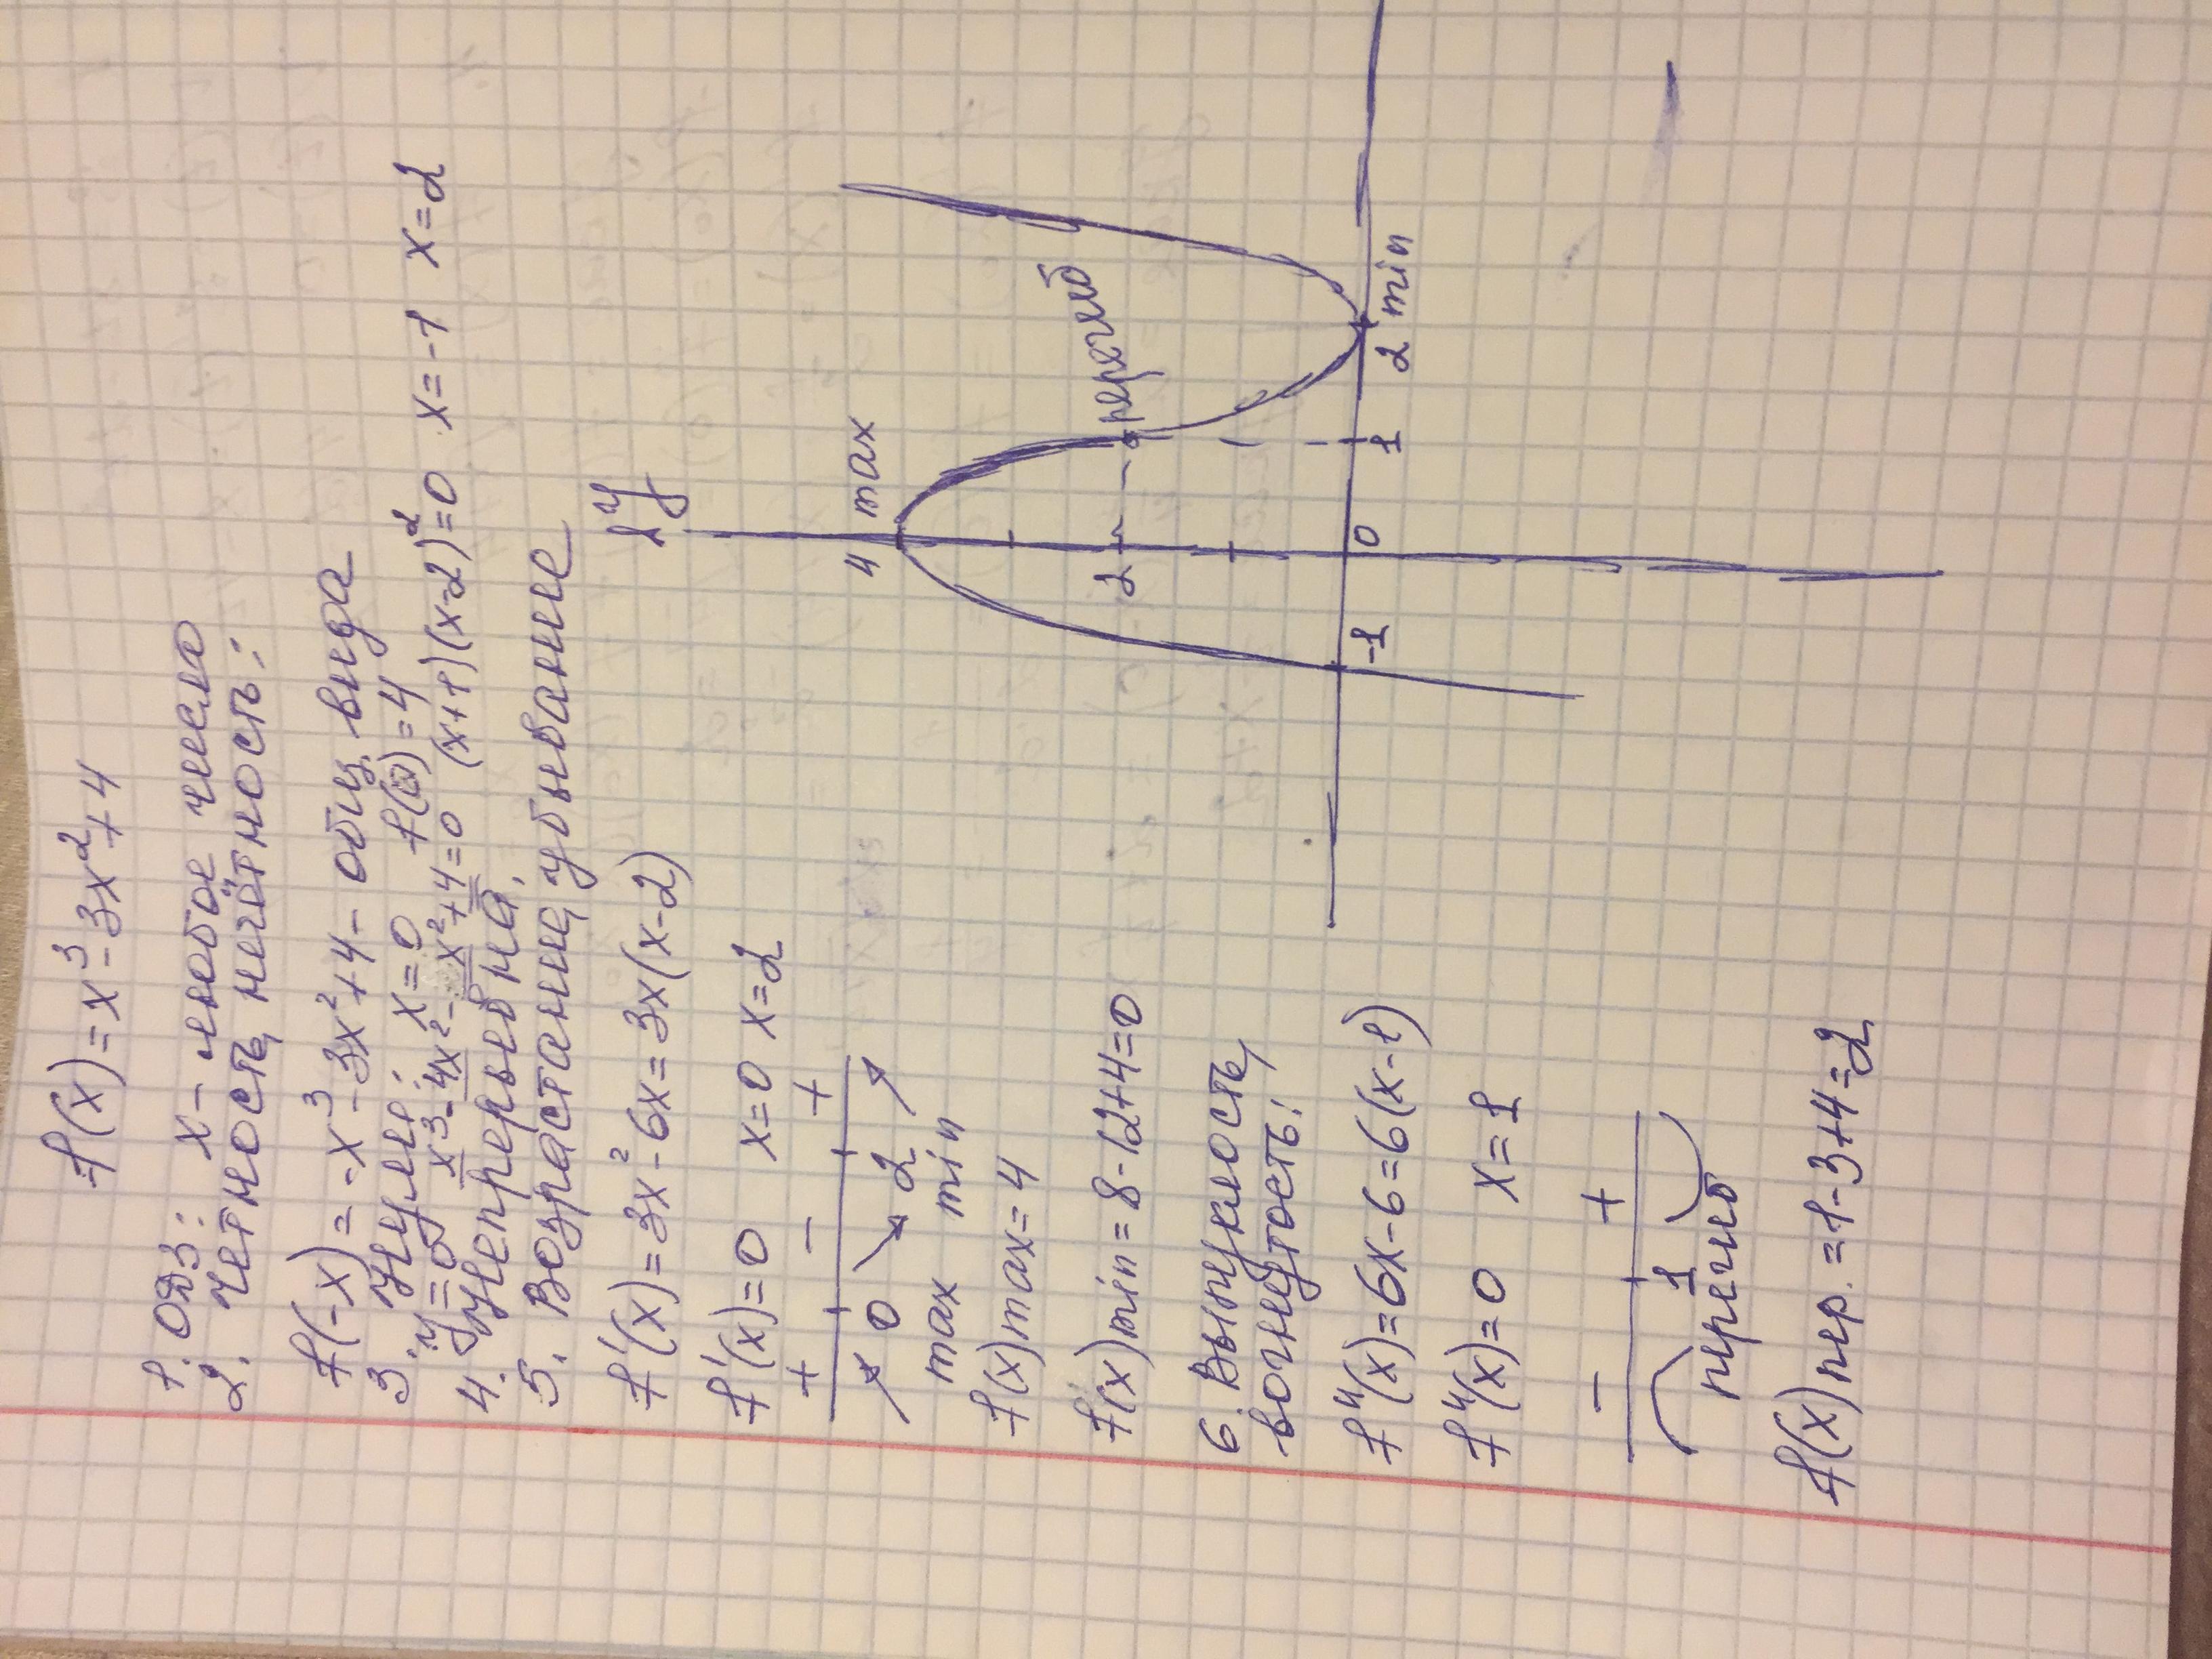 f(x)=x³-3x²+4
1. ОДЗ: x - любое число
2. Чётность, нечётность:
f(-x)=-x³-3x²+4 - общ. вида
3. Нули: x=0 f(0)=4
y=0 x³-4x²-x²+4=0 (x+1)(x-2)²=0 x=-1 x=2
4. Непрерывна.
5. Возрастание, убывание
f'(x)=3x²-6x=3x(x-2)
f'(x)=0 x=0 x=2
+ - +
0 2
max min
f(x)max=4
f(x)min=8-12+4=0
6. Выпуклость,
вогнутость:
f''(x)=6x-6=6(x-1)
f''(x)=0 x=1
- +
1
перегиб
f(x)пер.=1-3+4=2
y
4 max
2 перегиб
-1 0 1 2 min